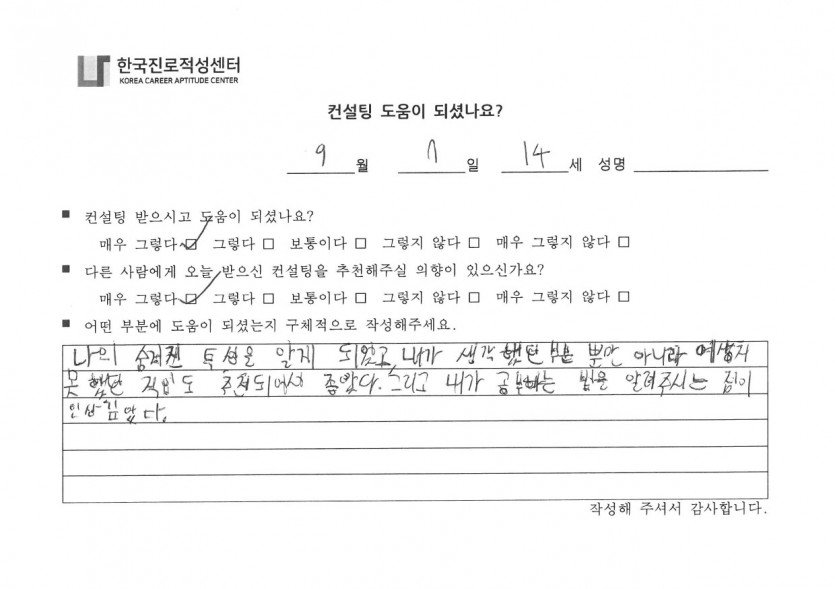 한국진로적성센터
KOREA CAREER APTITUDE CENTER
컨설팅 도움이 되셨나요?
9 월 7 일 14 세 성명
■ 컨설팅 받으시고 도움이 되셨나요?
매우 그렇다 ☑ 그렇다 □ 보통이다 □ 그렇지 않다 □ 매우 그렇지 않다 □
■ 다른 사람에게 오늘 받으신 컨설팅을 추천해주실 의향이 있으신가요?
매우 그렇다 ☑ 그렇다 □ 보통이다 □ 그렇지 않다 □ 매우 그렇지 않다 □
■ 어떤 부분에 도움이 되셨는지 구체적으로 작성해주세요.
나의 숨겨진 특성을 알게 되었고, 내가 생각했던 부분 뿐만 아니라 예상치
못했던 직업도 추천되어서 좋았다. 그리고 내가 공부하는 법을 알려주시는 점이
인상 깊었다.
작성해 주셔서 감사합니다.